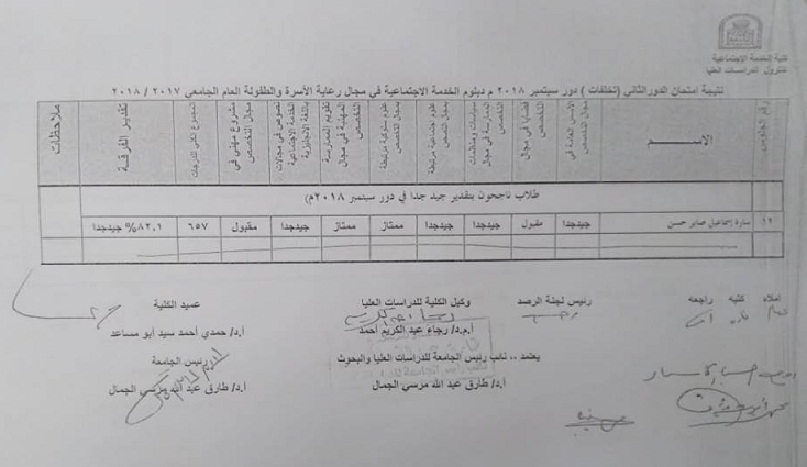 كلية الخدمة الاجتماعية
كنترول الدراسات العليا
نتيجة امتحان الدور الثاني (تخلفات) دور سبتمبر ٢٠١٨ م دبلوم الخدمة الاجتماعية في مجال رعاية الأسرة والطفولة العام الجامعي ٢٠١٧ / ٢٠١٨
رقم الجلوس
الاســـم
الأسس العامة في مجال التخصص
قضايا في مجال التخصص
سياسات ومنظمات الممارسة في مجال التخصص
علوم اجتماعية مرتبطة بمجال التخصص
علوم سلوكية مرتبطة بمجال التخصص
تقويم الممارسة المهنية في مجال التخصص
نصوص في مجالات الخدمة الاجتماعية باللغة الانجليزية
مشروع مهني في مجال التخصص
المجموع الكلي للدرجات
تقدير الفرقة
ملاحظات
طلاب ناجحون بتقدير جيد جدا في دور سبتمبر ٢٠١٨م)
١١ سارة إسماعيل صابر حسن جيدجدا مقبول جيدجدا جيدجدا ممتاز ممتاز جيدجدا مقبول ٦٥٧ ٨٢,١% جيدجدا
أملاه كتبه راجعه رئيس لجنة الرصد وكيل الكلية للدراسات العليا عميد الكلية
رجاء عبد الكريم
أ.م.د/ رجاء عبد الكريم أحمد أ.د/ حمدي أحمد سيد أبو مساعد
يعتمد .. نائب رئيس الجامعة للدراسات العليا والبحوث رئيس الجامعة
أ.د/ طارق عبد الله مرسي الجمال أ.د/ طارق عبد الله مرسي الجمال